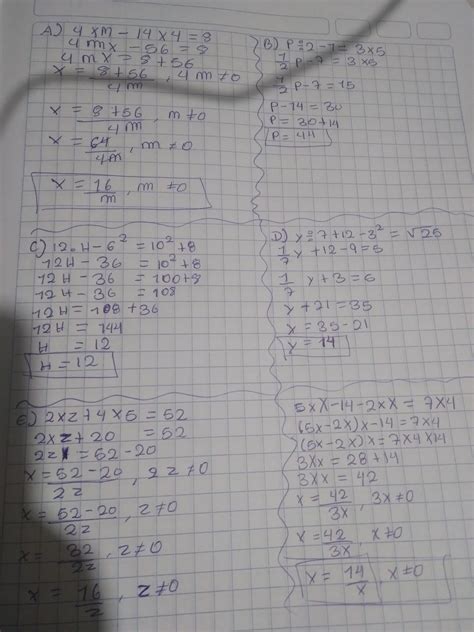 A) 4 x m - 14 x 4 = 8
4 m x - 56 = 8
4 m x = 8 + 56
x = 8+56/4m , 4m ≠ 0
x = 8+56/4m , m ≠ 0
x = 64/4m , m ≠ 0
x = 16/m , m ≠ 0
B) P ÷ 2 - 7 = 3 x 5
1/2 P - 7 = 3 x 5
1/2 P - 7 = 15
P - 14 = 30
P = 30 + 14
P = 44
C) 12 . H - 6² = 10² + 8
12H - 36 = 10² + 8
12H - 36 = 100 + 8
12H - 36 = 108
12H = 108 + 36
12H = 144
H = 12
H = 12
D) y ÷ 7 + 12 - 3² = √25
1/7 y + 12 - 9 = 5
1/7 y + 3 = 5
y + 21 = 35
x = 35 - 21
y = 14
E) 2 x z + 4 x 5 = 52
2xz + 20 = 52
2z x = 52 - 20
x = 52-20/2z , 2z ≠ 0
x = 52-20/2z , z ≠ 0
x = 32/2z , z ≠ 0
x = 16/z , z ≠ 0
5xX - 14 - 2xX = 7x4
(5x - 2x)x - 14 = 7x4
(5x - 2x)x = 7x4x14
3Xx = 28 + 14
3Xx = 42
x = 42/3x , 3x ≠ 0
x = 42/3x , x ≠ 0
x = 14/x x ≠ 0